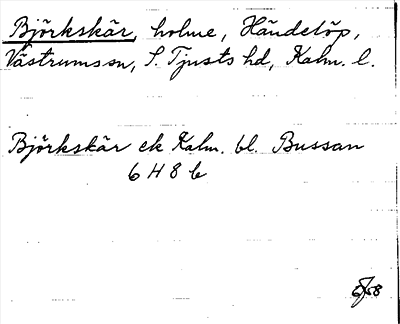 Björkskär, holme, Händelöp,
Västrums sn, S. Tjusts hd, Kalm. l.
Björkskär ek Kalm. bl. Bussan
6 H 8 b